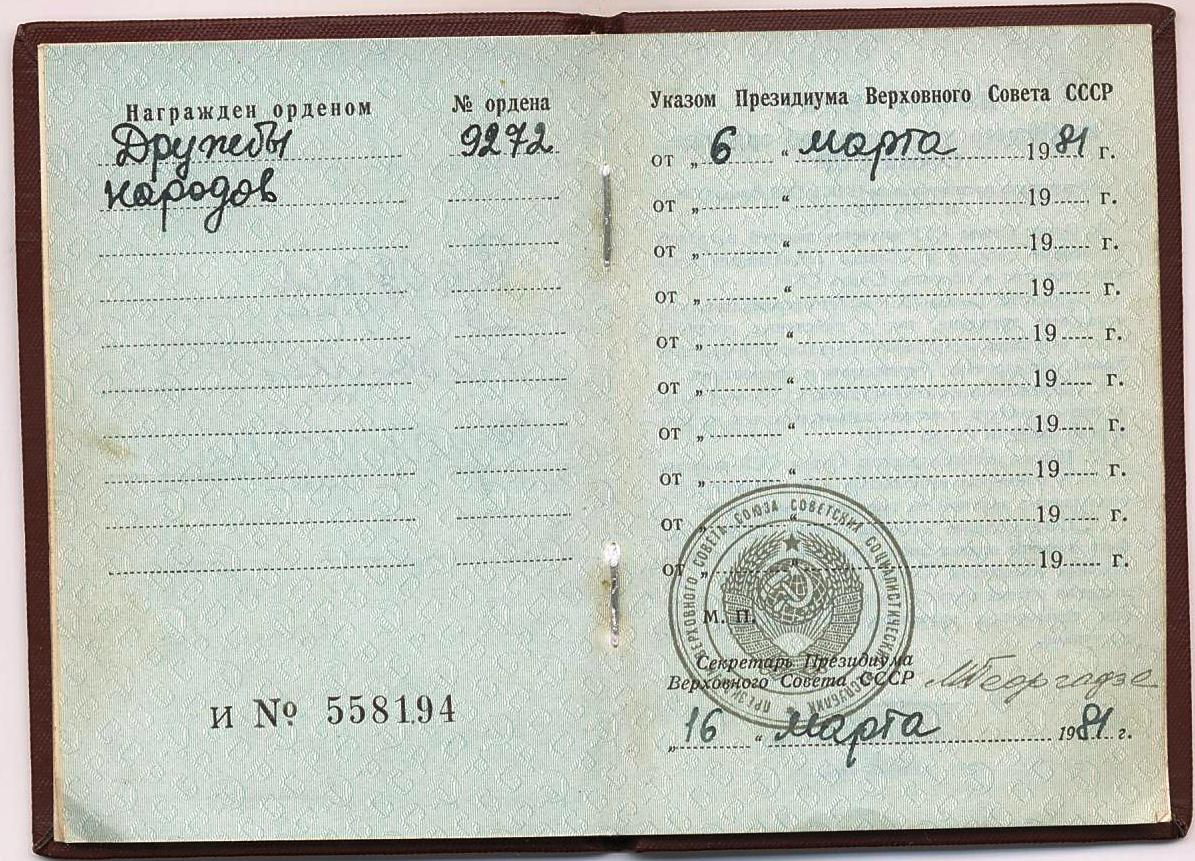 Награжден орденом
№ ордена
Дружбы
9272
народов
и № 558194
Указом Президиума Верховного Совета СССР
от „ 6 “ марта 1981 г.
от „ “ 19 г.
от „ “ 19 г.
от „ “ 19 г.
от „ “ 19 г.
от „ “ 19 г.
от „ “ 19 г.
от „ “ 19 г.
от „ “ 19 г.
от „ “ 19 г.
ПРЕЗИДИУМ ВЕРХОВНОГО СОВЕТА СОЮЗА СОВЕТСКИХ СОЦИАЛИСТИЧЕСКИХ РЕСПУБЛИК
М. П.
Секретарь Президиума
Верховного Совета СССР МГеоргадзе
„ 16 “ марта 1981 г.